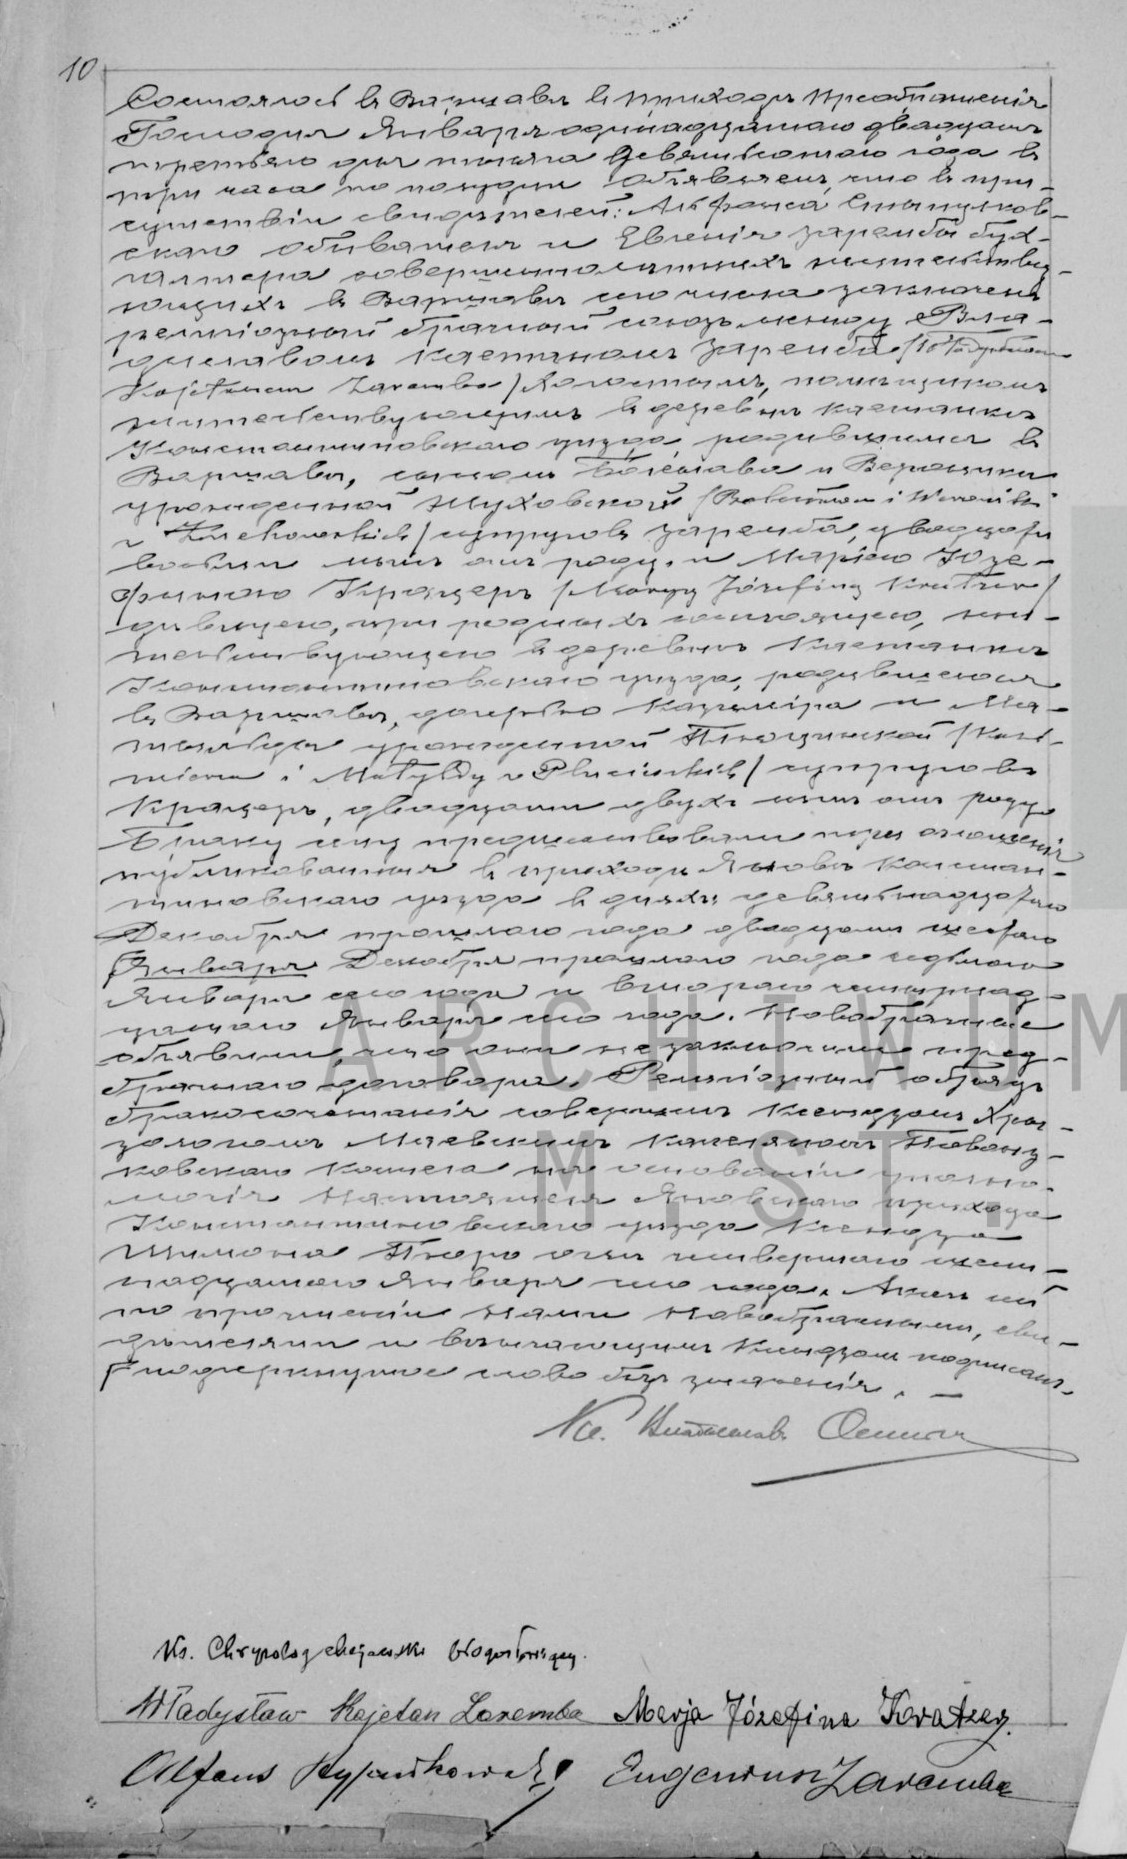 10
Состоялось въ Варшавѣ въ приходѣ Преображенія
Господня Января одинадцатаго двадцать
третьяго дня тысяча девятьсотаго года въ
три часа по полудни Объявляемъ, что въ при-
сутствіи свидѣтелей: Альфонса
скаго обывателя и Евгенія Заремба бух-
галтера совершеннолѣтнихъ жительству-
ющихъ въ Варшавѣ сего числа заключенъ
религіозный брачный союзъ между Вла-
диславомъ Каетаномъ Заремба /Władysławem
Kajetanem Zaremba/ Холостымъ, помѣщикомъ
жительствующимъ въ деревнѣ Каетанкѣ
Константиновскаго уѣзда, родившимся въ
Варшавѣ, сыномъ Болеслава и Вероники
урожденной Жуховской /Bolesława i Weroniki
z Żuchowskich/ супруговъ Заремба, двадцати
восьми лѣтъ отъ роду, и Маріею Юзе-
финою Кратцеръ /Maryą Józefiną Kratzer/
дѣвицею, при родныхъ состоящею, жи-
тельствующею въ деревнѣ Каетанкѣ
Константиновскаго уѣзда, родившеюся
въ Варшавѣ, дочерью Казиміра и Ма-
тильды урожденной Плюцинской /Kazi-
mierza i Matyldy z Plucińskich/ супруговъ
Кратцеръ, двадцати двухъ лѣтъ отъ роду.
Браку сему предшествовали три оглашенія
публикованныя въ приходѣ Яновъ Констан-
тиновскаго уѣзда въ дняхъ девятнадцатаго
Декабря прошлаго года двадцать шестаго
Января Декабря прошлаго года седьмаго
Января сего года и втораго четырнад-
цатаго Января сего года. Новобрачные
объявили, что они не заключили пред-
брачнаго договора. Религіозный обрядъ
бракосочетанія совершилъ Ксендзомъ Хри-
зологомъ капеляномъ Повонз-
ковскаго костела на основаніи уполно-
мочія Настоятеля Яновскаго прихода
Константиновскаго уѣзда Ксендза
Шимона Пюро отъ четвертаго шест-
надцатаго Января сего года. Актъ сей
по прочтеніи Нами Новобрачными, сви-
дѣтелями и Ксендзомъ подписанъ.
подчеркнутое слово безъ значенія. —
Кс.
Ks. Chryzolog błogosławiący.
Władysław Kajetan Zaremba Marja Józefina Kratzer.
Alfons Eugeniusz Zaremba
ARCHIWUM
M. ST.